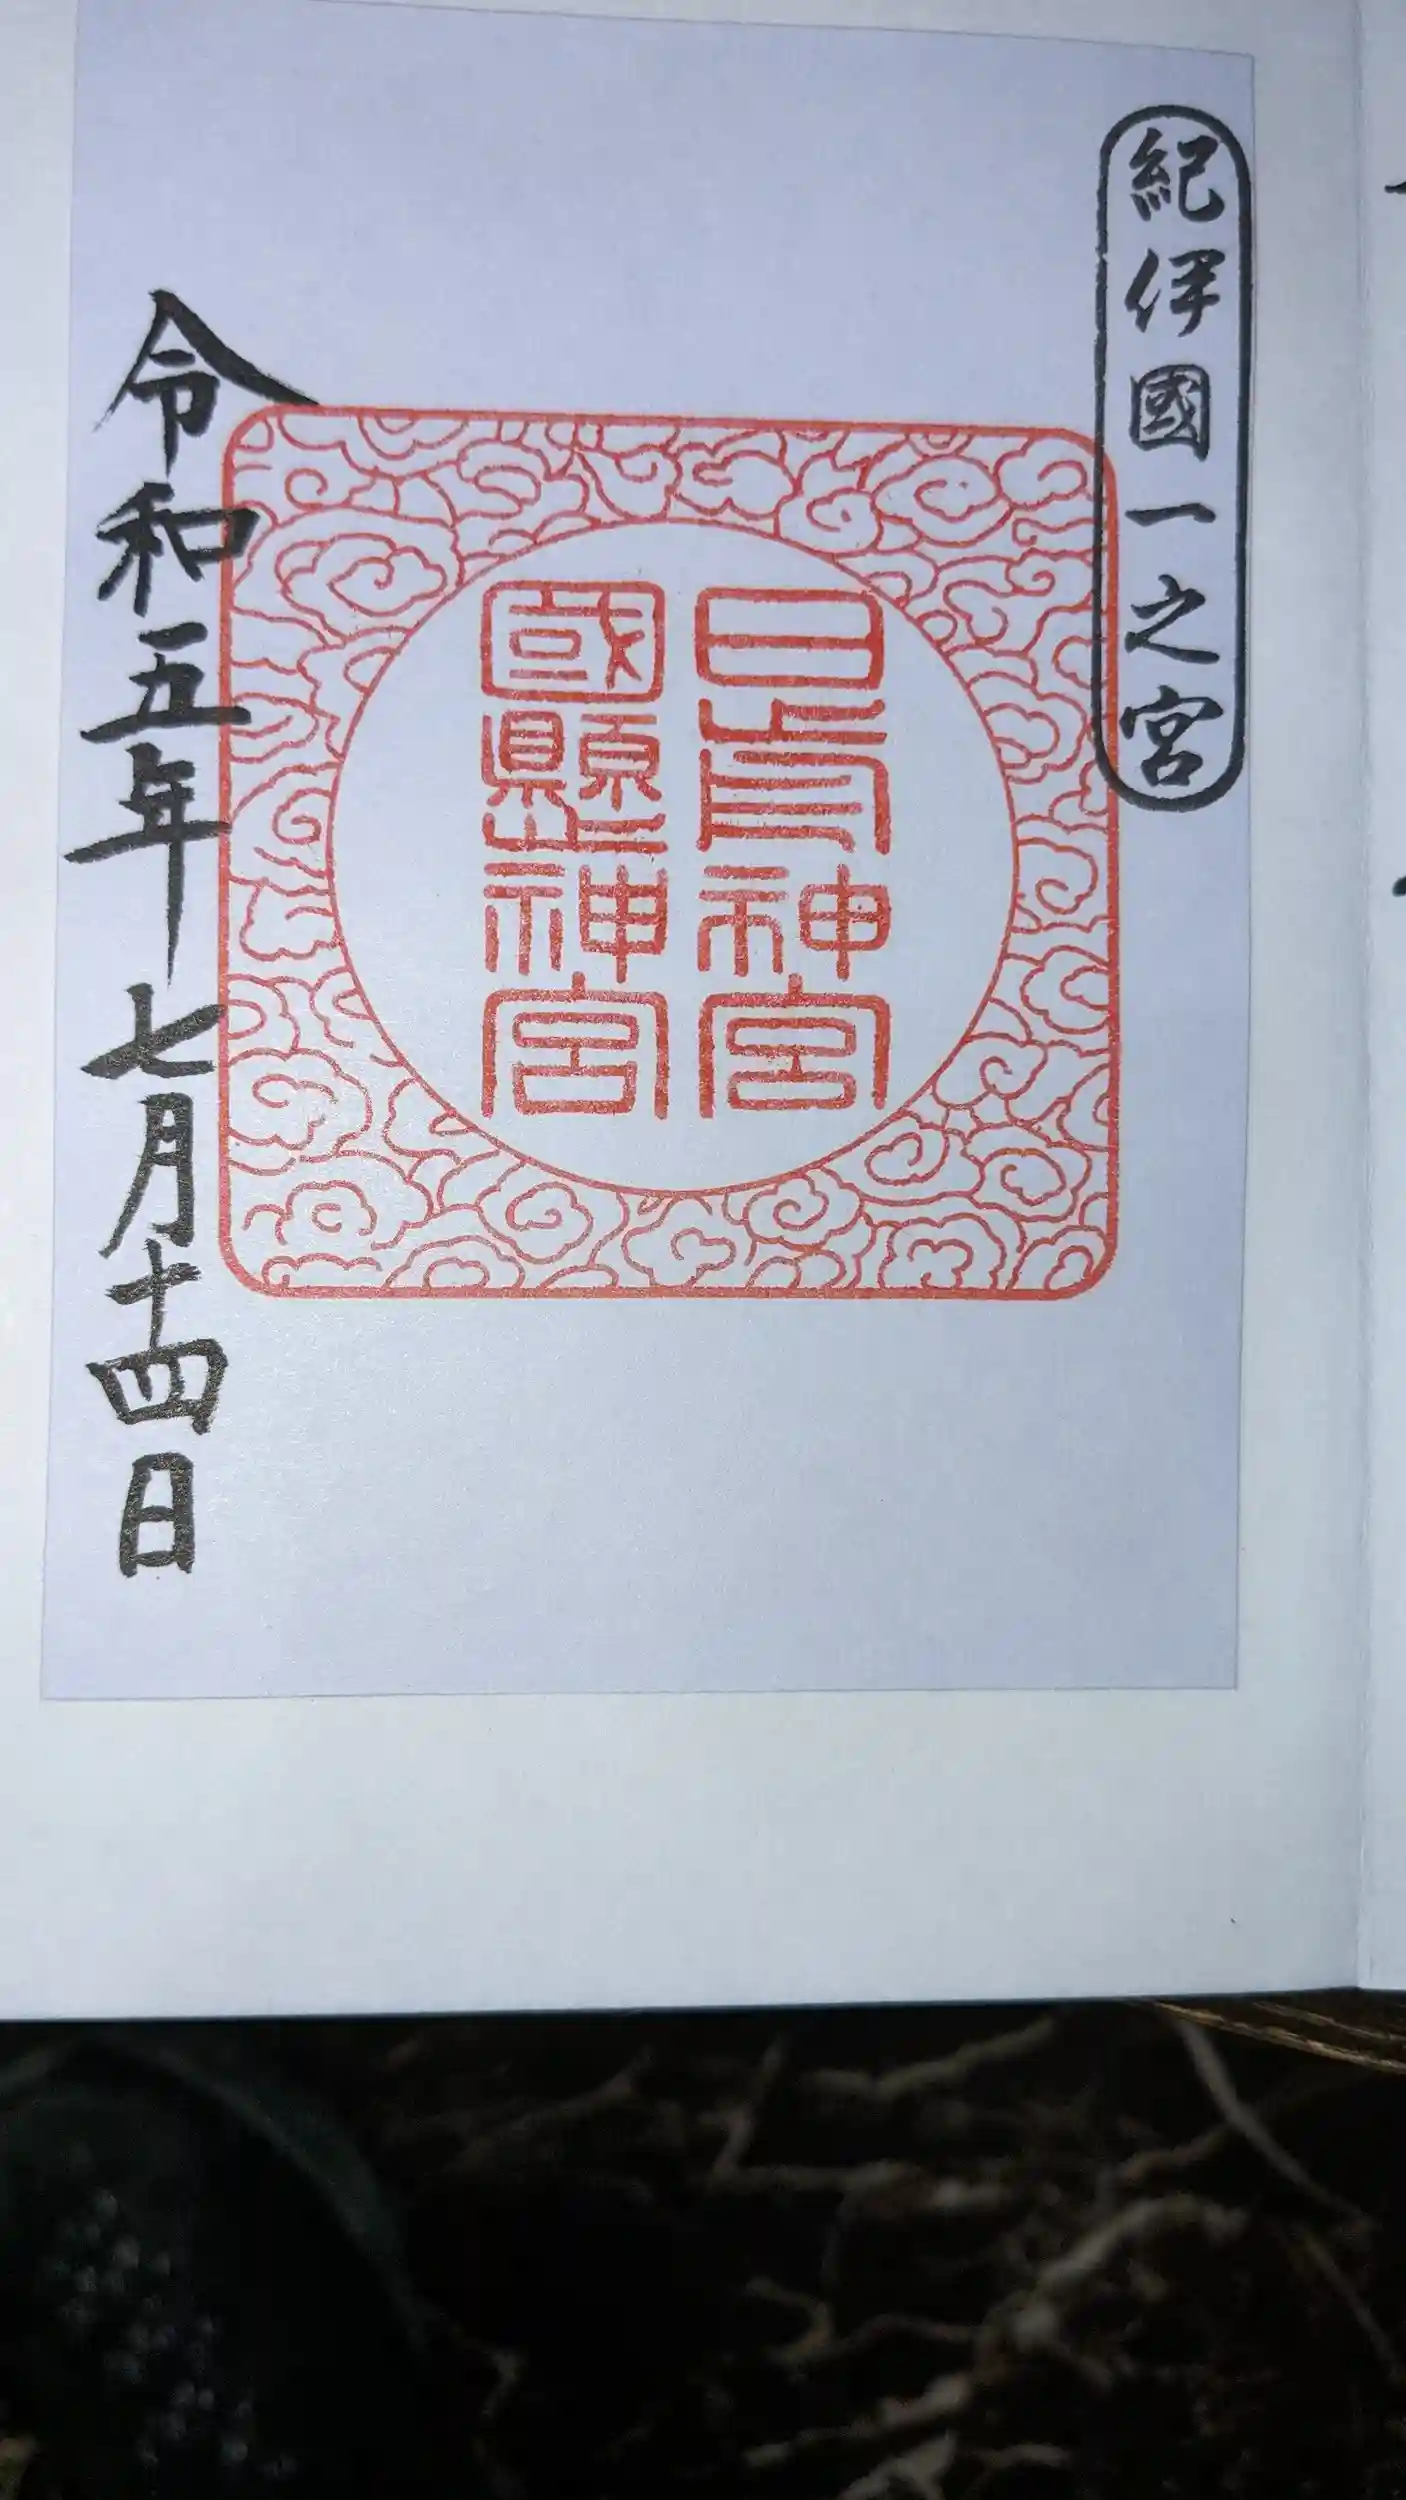 紀伊國一之宮
日前神宮
國懸神宮
令和五年七月十四日